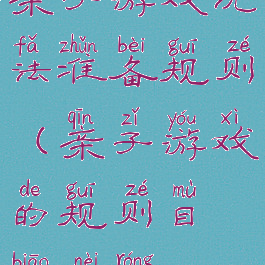 亲子游戏玩
fǎ zhǔn bèi guī zé
法准备规则
qīn zǐ yóu xì
（亲子游戏
de guī zé mù
的规则目
biāo nèi róng